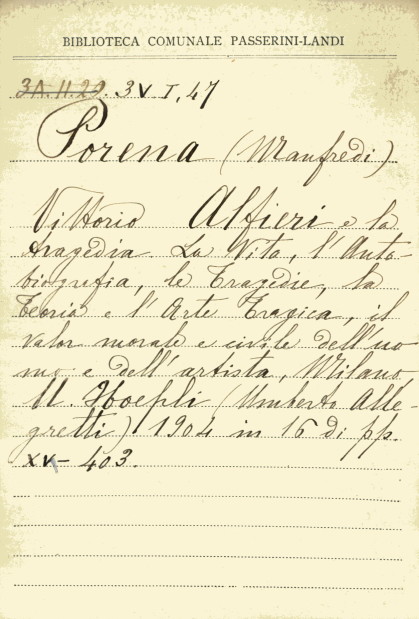 BIBLIOTECA COMUNALE PASSERINI-LANDI
3A.II.20. 3V I, 47
Porena (Manfredi)
Vittorio Alfieri e la
tragedia. La Vita, l'Auto-
biografia, le Tragedie, la
Teoria e l'Arte Tragica, il
valor morale e civile dell'uo
mo e dell'artista, Milano
U. Hoepli (Umberto Alle-
gretti) 1904 in 16 di pp.
XV- 403.